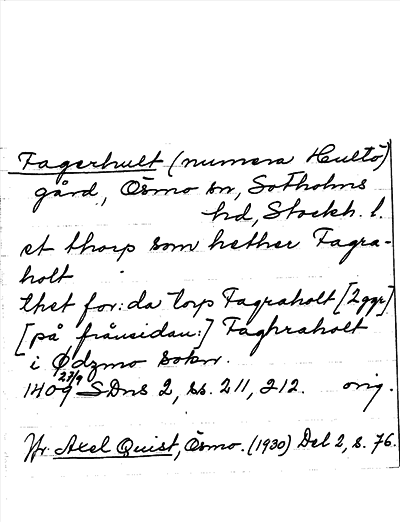 Fagerhult (numera Hultö)
gård, Ösmo sn, Sotholms
hd, Stockh. l.
et thorp som hether Fagra-
holt
thet for:da torp Fagraholt [2ggr]
[på frånsidan:] Faghraholt
i Ødzmo sokn.
1409 27/9 SDns 2, ss. 211, 212. orig.
Jfr Axel Quist, Ösmo. (1930) Del 2, s. 76.